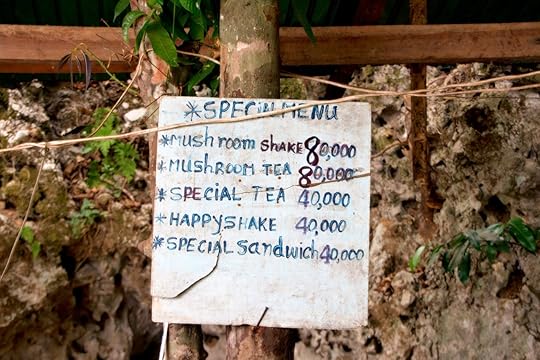 *SPECIAL MENU
*mushroom SHAKE 80,000
*MUSHROOM TEA 80,000
*SPECIAL TEA 40,000
*HAPPYSHAKE 40,000
*SPECIAL Sandwich 40,000